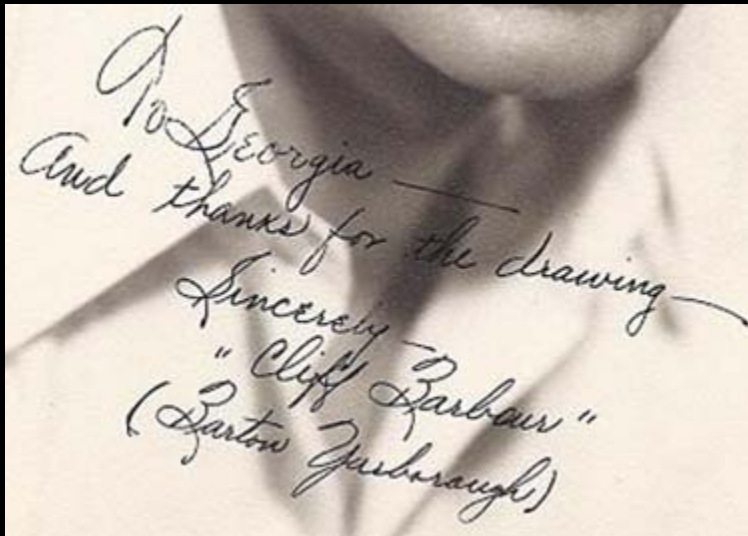 To Georgia —
And thanks for the drawing —
Sincerely
"Cliff Barbour"
(Barton Yarborough)